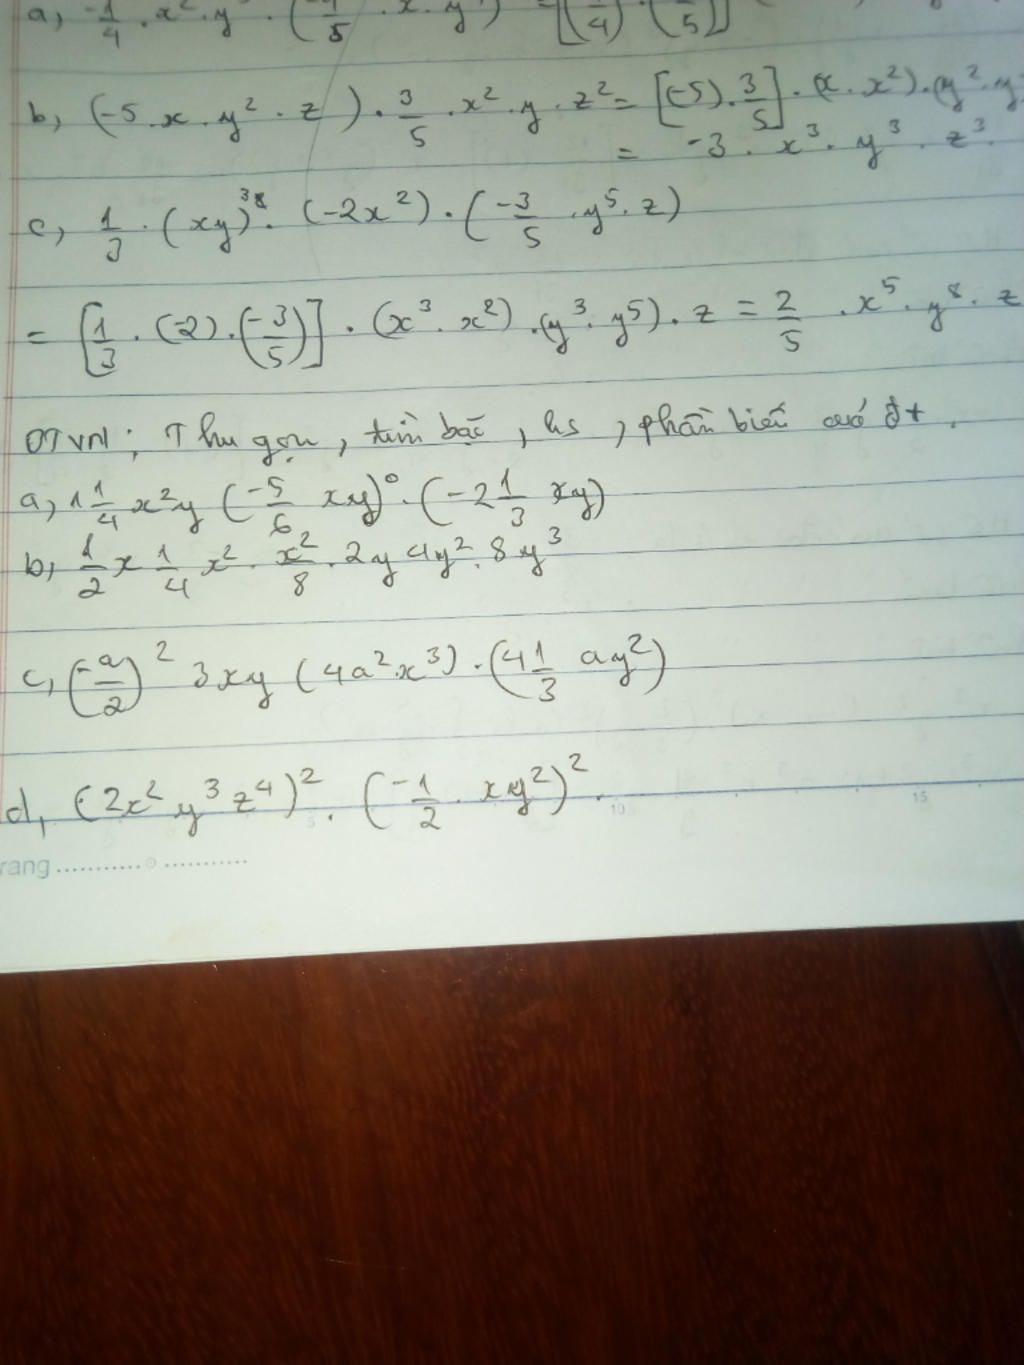 a, -1/4 . x² . y . ( . x . y ) = [( /4) . ( /5)]
b, (-5 . x . y² . z) . 3/5 . x² . y . z² = [(-5) . 3/5] . (x . x²) . (y² . y
= -3 . x³ . y³ . z³.
c, 1/3 . (xy)³ . (-2x²) . (-3/5 . y⁵ . z)
= [1/3 . (-2) . (-3/5)] . (x³ . x²) . (y³ . y⁵) . z = 2/5 . x⁵ . y⁸ . z
BTVN: Thu gọn, tìm bậc, hs, phần biến của đt.
a, 1 1/4 x²y (-5/6 xy)⁰ . (-2 1/3 xy)
b, 1/2 x 1/4 x² . x²/8 . 2y 4y² . 8y³
c, (-a/2)² 3xy (4a²x³) . (4 1/3 ay²)
d, (2x² y³ z⁴)² . (-1/2 . xy²)².
5 10 15
rang